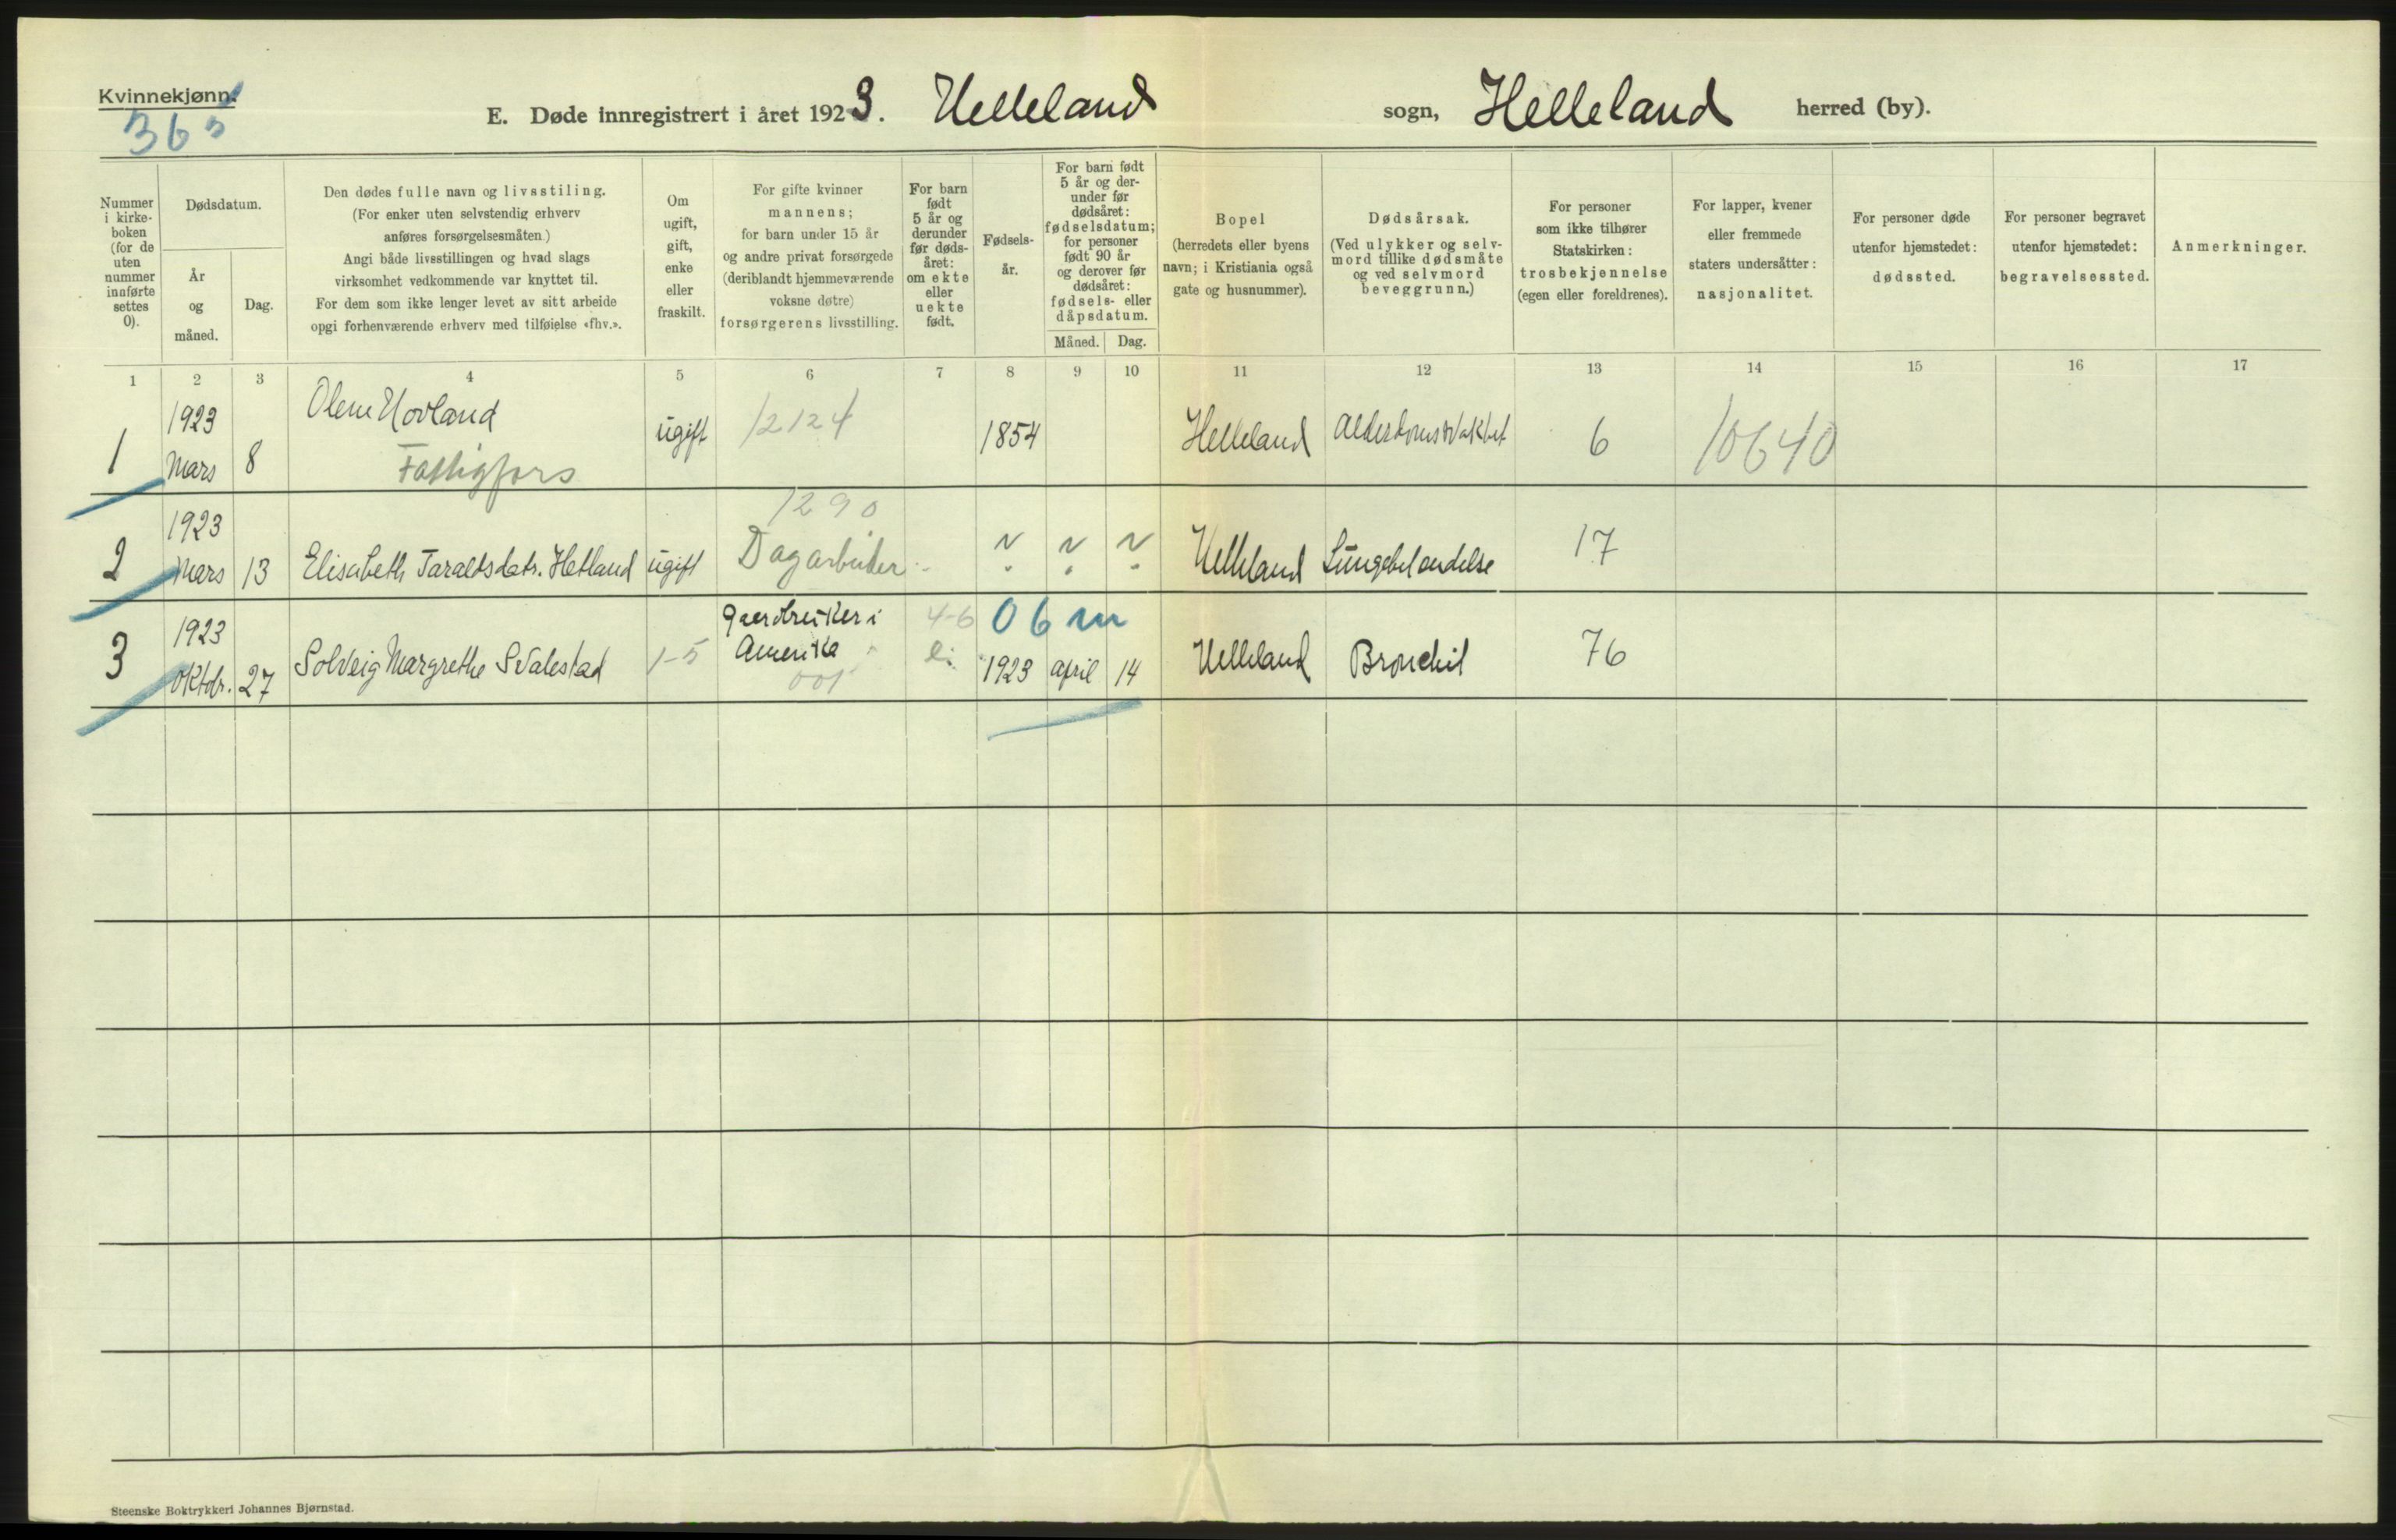 Kvinnekjønn.
36
E. Døde innregistrert i året 1923. Helleland sogn, Helleland herred (by).
Nummer i kirke-boken (for de uten nummer innførte settes 0).
Dødsdatum.
År og måned.
Dag.
Den dødes fulle navn og livsstiling.
(For enker uten selvstendig erhverv
anføres forsørgelsesmåten.)
Angi både livsstillingen og hvad slags
virksomhet vedkommende var knyttet til.
For dem som ikke lenger levet av sitt arbeide
opgi forhenværende erhverv med tilføielse «fhv.».
Om ugift, gift, enke eller fraskilt.
For gifte kvinner
mannens;
for barn under 15 år
og andre privat forsørgede
(deriblandt hjemmeværende
voksne døtre)
forsørgerens livsstilling.
For barn født 5 år og derunder før døds-året: om ekte eller uekte født.
Fødsels-år.
For barn født 5 år og der-under før dødsåret: fødselsdatum; for personer født 90 år og derover før dødsåret: fødsels- eller dåpsdatum.
Måned. Dag.
Bopel
(herredets eller byens
navn; i Kristiania også
gate og husnummer).
Dødsårsak.
(Ved ulykker og selv-
mord tillike dødsmåte
og ved selvmord
beveggrunn.)
For personer
som ikke tilhører
Statskirken:
trosbekjennelse
(egen eller foreldrenes).
For lapper, kvener
eller fremmede
staters undersåtter:
nasjonalitet.
For personer døde
utenfor hjemstedet:
dødssted.
For personer begravet
utenfor hjemstedet:
begravelsessted.
Anmerkninger.
1 2 3 4 5 6 7 8 9 10 11 12 13 14 15 16 17
1 1923 Mars 8 Olene Hovland ugift 12124 1854 Helleland Alderdomssvakhet 6 10640
Fattigfors
1290
2 1923 Mars 13 Elisabeth Taraldsdatr. Hetland ugift Dagarbeider Helleland Lungebetendelse 17
06 m
3 1923 Oktobr. 27 Solveig Margrethe Svalestad 1-5 Gaardbruker i Amerika 4-6 1923 april 14 Helleland Bronchit 76
001
Steenske Boktrykkeri Johannes Bjørnstad.